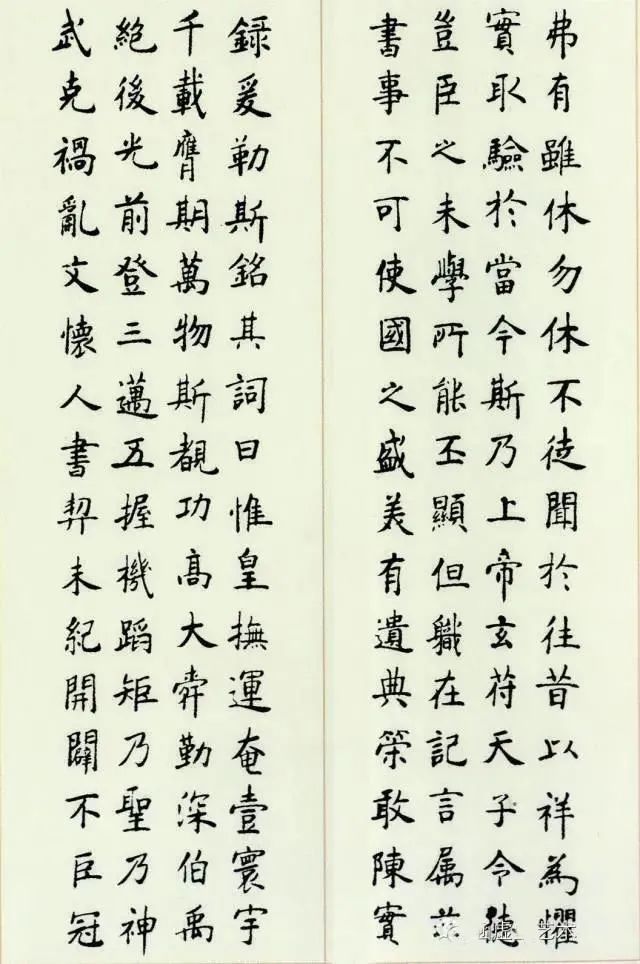 弗有雖休勿休不徒聞於往昔以祥為懼
實取驗於當今斯乃上帝玄符天子令德
豈臣之未學所能丕顯但職在記言属茲
書事不可使國之盛美有遺典策敢陳實
録爰勒斯銘其詞曰惟皇撫運奄壹寰宇
千載膺期萬物斯覩功高大舜勤深伯禹
絕後光前登三邁五握機蹈矩乃聖乃神
武克禍亂文懷人書契未紀開闢不臣冠
艺术